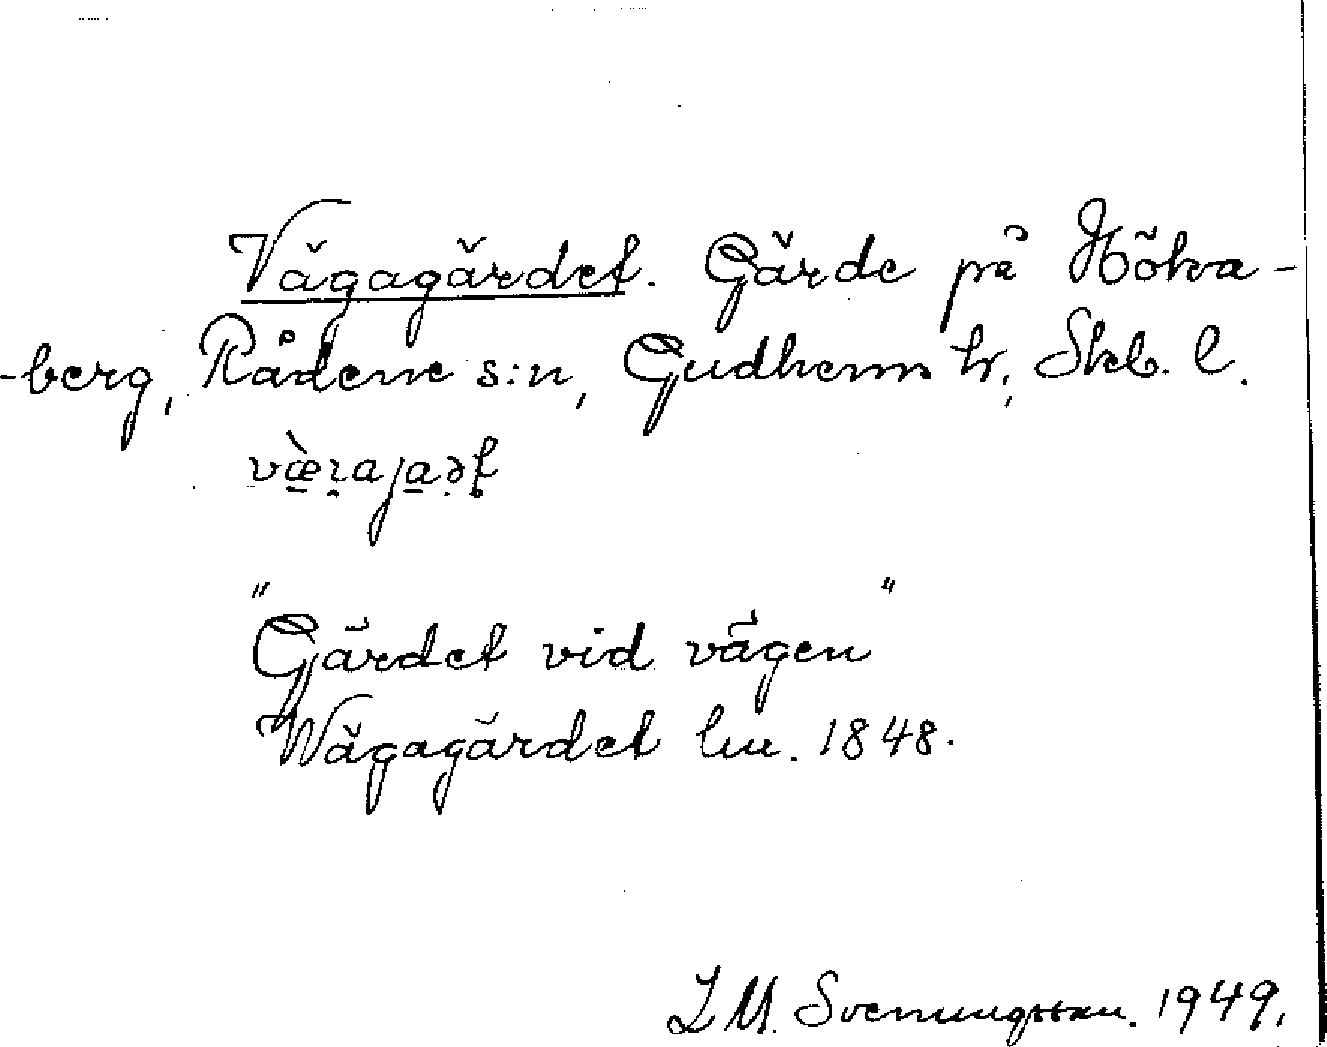 Vägagärdet. Gärde på Höka-
-berg, Rådene s:n, Gudhems hr, Skb. l.
"Gärdet vid vägen"
Wägagärdet lm. 1848.
I M. Svenungsson. 1949.